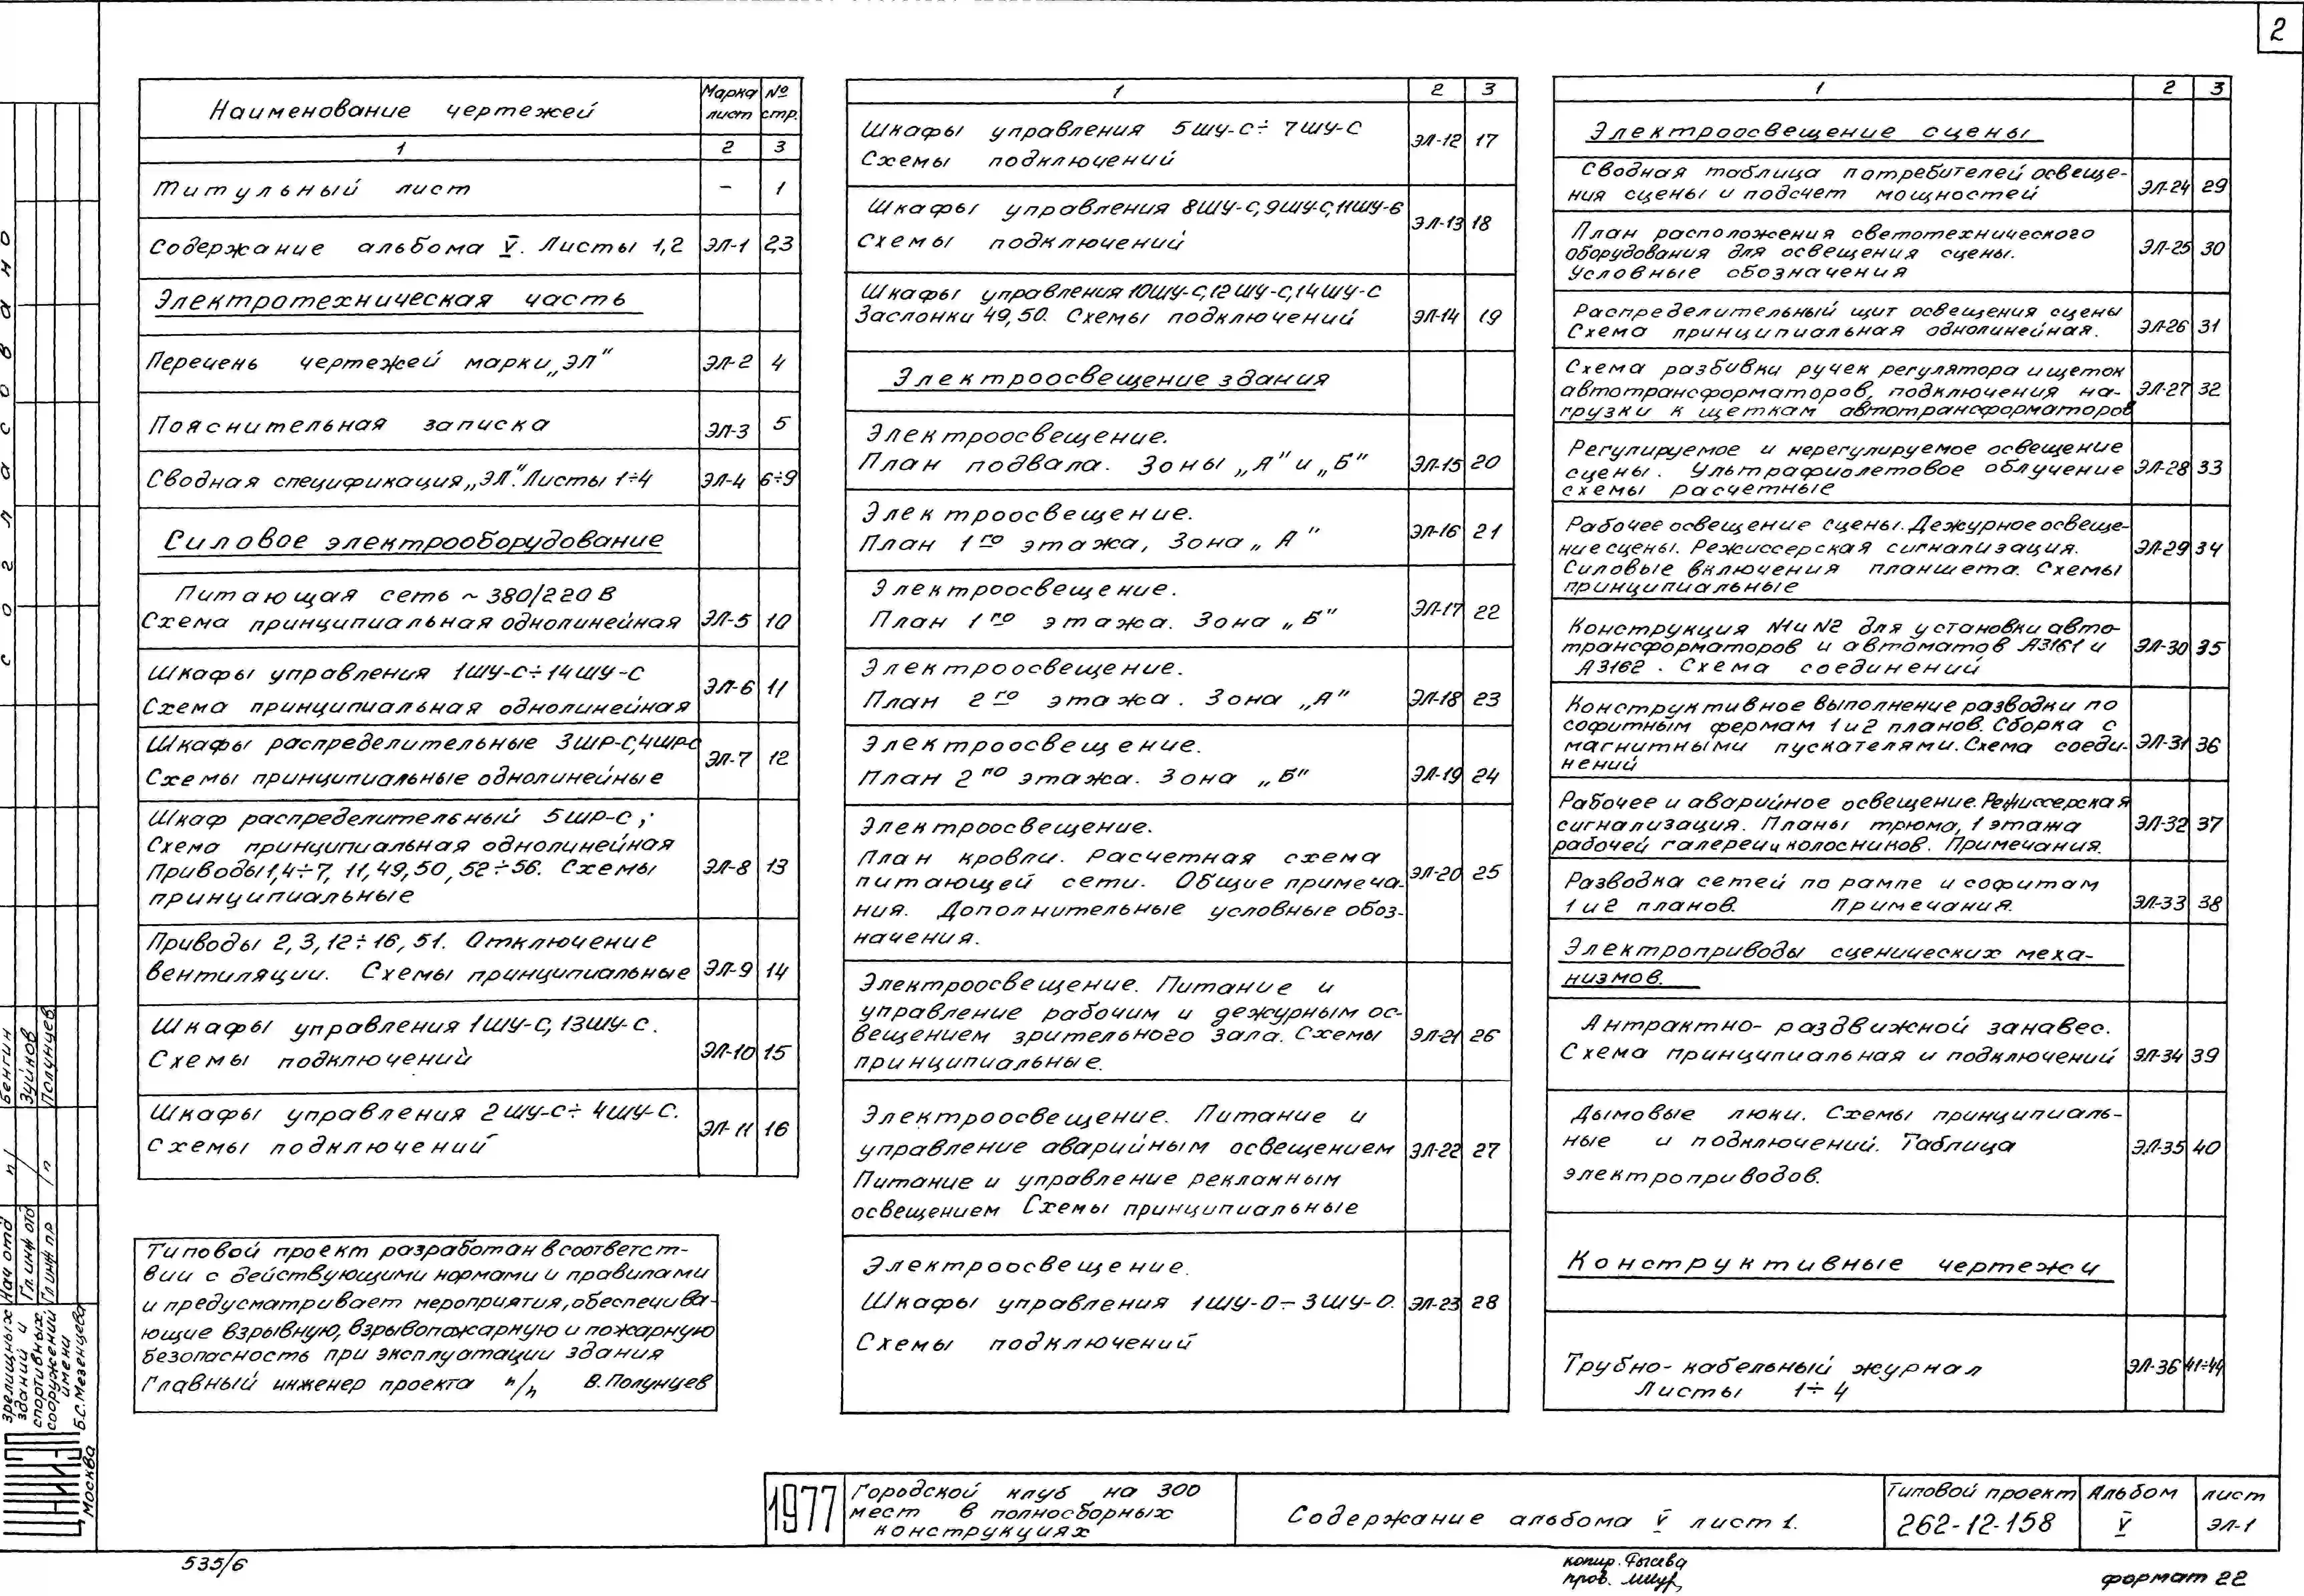 2
Наименование чертежей
Марка лист
№ стр.
1 2 3
Титульный лист – 1
Содержание альбома V. Листы 1,2 ЭЛ-1 2,3
Электротехническая часть
Перечень чертежей марки „ЭЛ" ЭЛ-2 4
Пояснительная записка ЭЛ-3 5
Сводная спецификация „ЭЛ". Листы 1÷4 ЭЛ-4 6÷9
Силовое электрооборудование
Питающая сеть ~ 380/220 В
Схема принципиальная однолинейная ЭЛ-5 10
Шкафы управления 1ШУ-С÷14ШУ-С
Схема принципиальная однолинейная ЭЛ-6 11
Шкафы распределительные 3ШР-С,4ШР-С
Схемы принципиальные однолинейные ЭЛ-7 12
Шкаф распределительный 5ШР-С;
Схема принципиальная однолинейная
Приводы 1,4÷7, 11,49,50, 52÷56. Схемы ЭЛ-8 13
принципиальные
Приводы 2,3,12÷16,51. Отключение
вентиляции. Схемы принципиальные ЭЛ-9 14
Шкафы управления 1ШУ-С, 13ШУ-С.
Схемы подключений ЭЛ-10 15
Шкафы управления 2ШУ-С÷4ШУ-С.
Схемы подключений ЭЛ-11 16
Типовой проект разработан в соответст-
вии с действующими нормами и правилами
и предусматривает мероприятия, обеспечива-
ющие взрывную, взрывопожарную и пожарную
безопасность при эксплуатации здания
Главный инженер проекта п/п В. Полунцев
1 2 3
Шкафы управления 5ШУ-С÷7ШУ-С
Схемы подключений ЭЛ-12 17
Шкафы управления 8ШУ-С,9ШУ-С,11ШУ-С
Схемы подключений ЭЛ-13 18
Шкафы управления 10ШУ-С,12ШУ-С,14ШУ-С
Заслонки 49,50. Схемы подключений ЭЛ-14 19
Электроосвещение здания
Электроосвещение.
План подвала. Зоны „А" и „Б" ЭЛ-15 20
Электроосвещение.
План 1го этажа, Зона „А" ЭЛ-16 21
Электроосвещение.
План 1го этажа. Зона „Б" ЭЛ-17 22
Электроосвещение.
План 2го этажа. Зона „А" ЭЛ-18 23
Электроосвещение.
План 2го этажа. Зона „Б" ЭЛ-19 24
Электроосвещение.
План кровли. Расчетная схема
питающей сети. Общие примеча- ЭЛ-20 25
ния. Дополнительные условные обоз-
начения.
Электроосвещение. Питание и
управление рабочим и дежурным ос-
вещением зрительного зала. Схемы ЭЛ-21 26
принципиальные.
Электроосвещение. Питание и
управление аварийным освещением ЭЛ-22 27
Питание и управление рекламным
освещением Схемы принципиальные
Электроосвещение.
Шкафы управления 1ШУ-О÷3ШУ-О. ЭЛ-23 28
Схемы подключений
1 2 3
Электроосвещение сцены
Сводная таблица потребителей освеще-
ния сцены и подсчет мощностей ЭЛ-24 29
План расположения светотехнического
оборудования для освещения сцены. ЭЛ-25 30
Условные обозначения
Распределительный щит освещения сцены
Схема принципиальная однолинейная. ЭЛ-26 31
Схема разбивки ручек регулятора и щеток
автотрансформаторов, подключения на- ЭЛ-27 32
грузки к щеткам автотрансформаторов
Регулируемое и нерегулируемое освещение
сцены. Ультрафиолетовое облучение ЭЛ-28 33
схемы расчетные
Рабочее освещение сцены. Дежурное освеще-
ние сцены. Режиссерская сигнализация. ЭЛ-29 34
Силовые включения планшета. Схемы
принципиальные
Конструкция №1 и №2 для установки авто-
трансформаторов и автоматов А3161 и ЭЛ-30 35
А3162. Схема соединений
Конструктивное выполнение разводки по
софитным фермам 1 и 2 планов. Сборка с
магнитными пускателями. Схема соеди- ЭЛ-31 36
нений
Рабочее и аварийное освещение. Режиссерская
сигнализация. Планы трюма, 1 этажа ЭЛ-32 37
рабочей галереи и колосников. Примечания.
Разводка сетей по рампе и софитам
1 и 2 планов. Примечания. ЭЛ-33 38
Электроприводы сценических меха-
низмов.
Антрактно-раздвижной занавес.
Схема принципиальная и подключений ЭЛ-34 39
Дымовые люки. Схемы принципиаль-
ные и подключений. Таблица ЭЛ-35 40
электроприводов.
Конструктивные чертежи
Трубно-кабельный журнал ЭЛ-36 41÷44
Листы 1÷4
1977
Городской клуб на 300
мест в полносборных
конструкциях
Содержание альбома V лист 1.
Типовой проект
262-12-158
Альбом
V
лист
ЭЛ-1
535/6
копир.
пров.
формат 22
Согласовано
Бенгин
Зуйков
Полунцев
п/п
Нач отд
Гл. инж отд
Гл инж пр
ЦНИИЭП
зрелищных
зданий и
спортивных
сооружений
имени
Б.С. Мезенцева
Москва